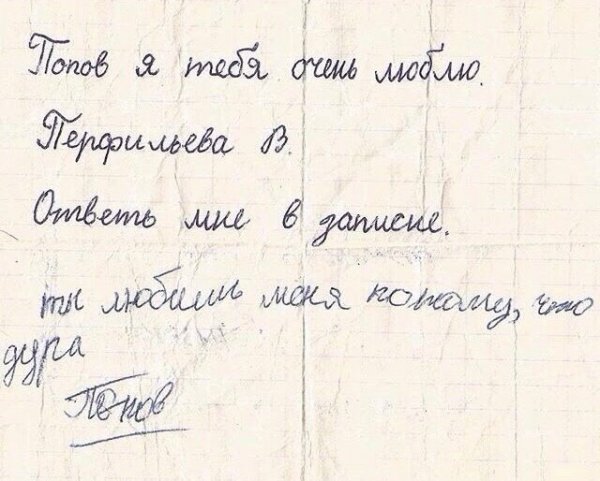 Попов я тебя очень люблю.
Перфильева В.
Ответь мне в записке.
ты любишь меня потому, что
дура
Попов